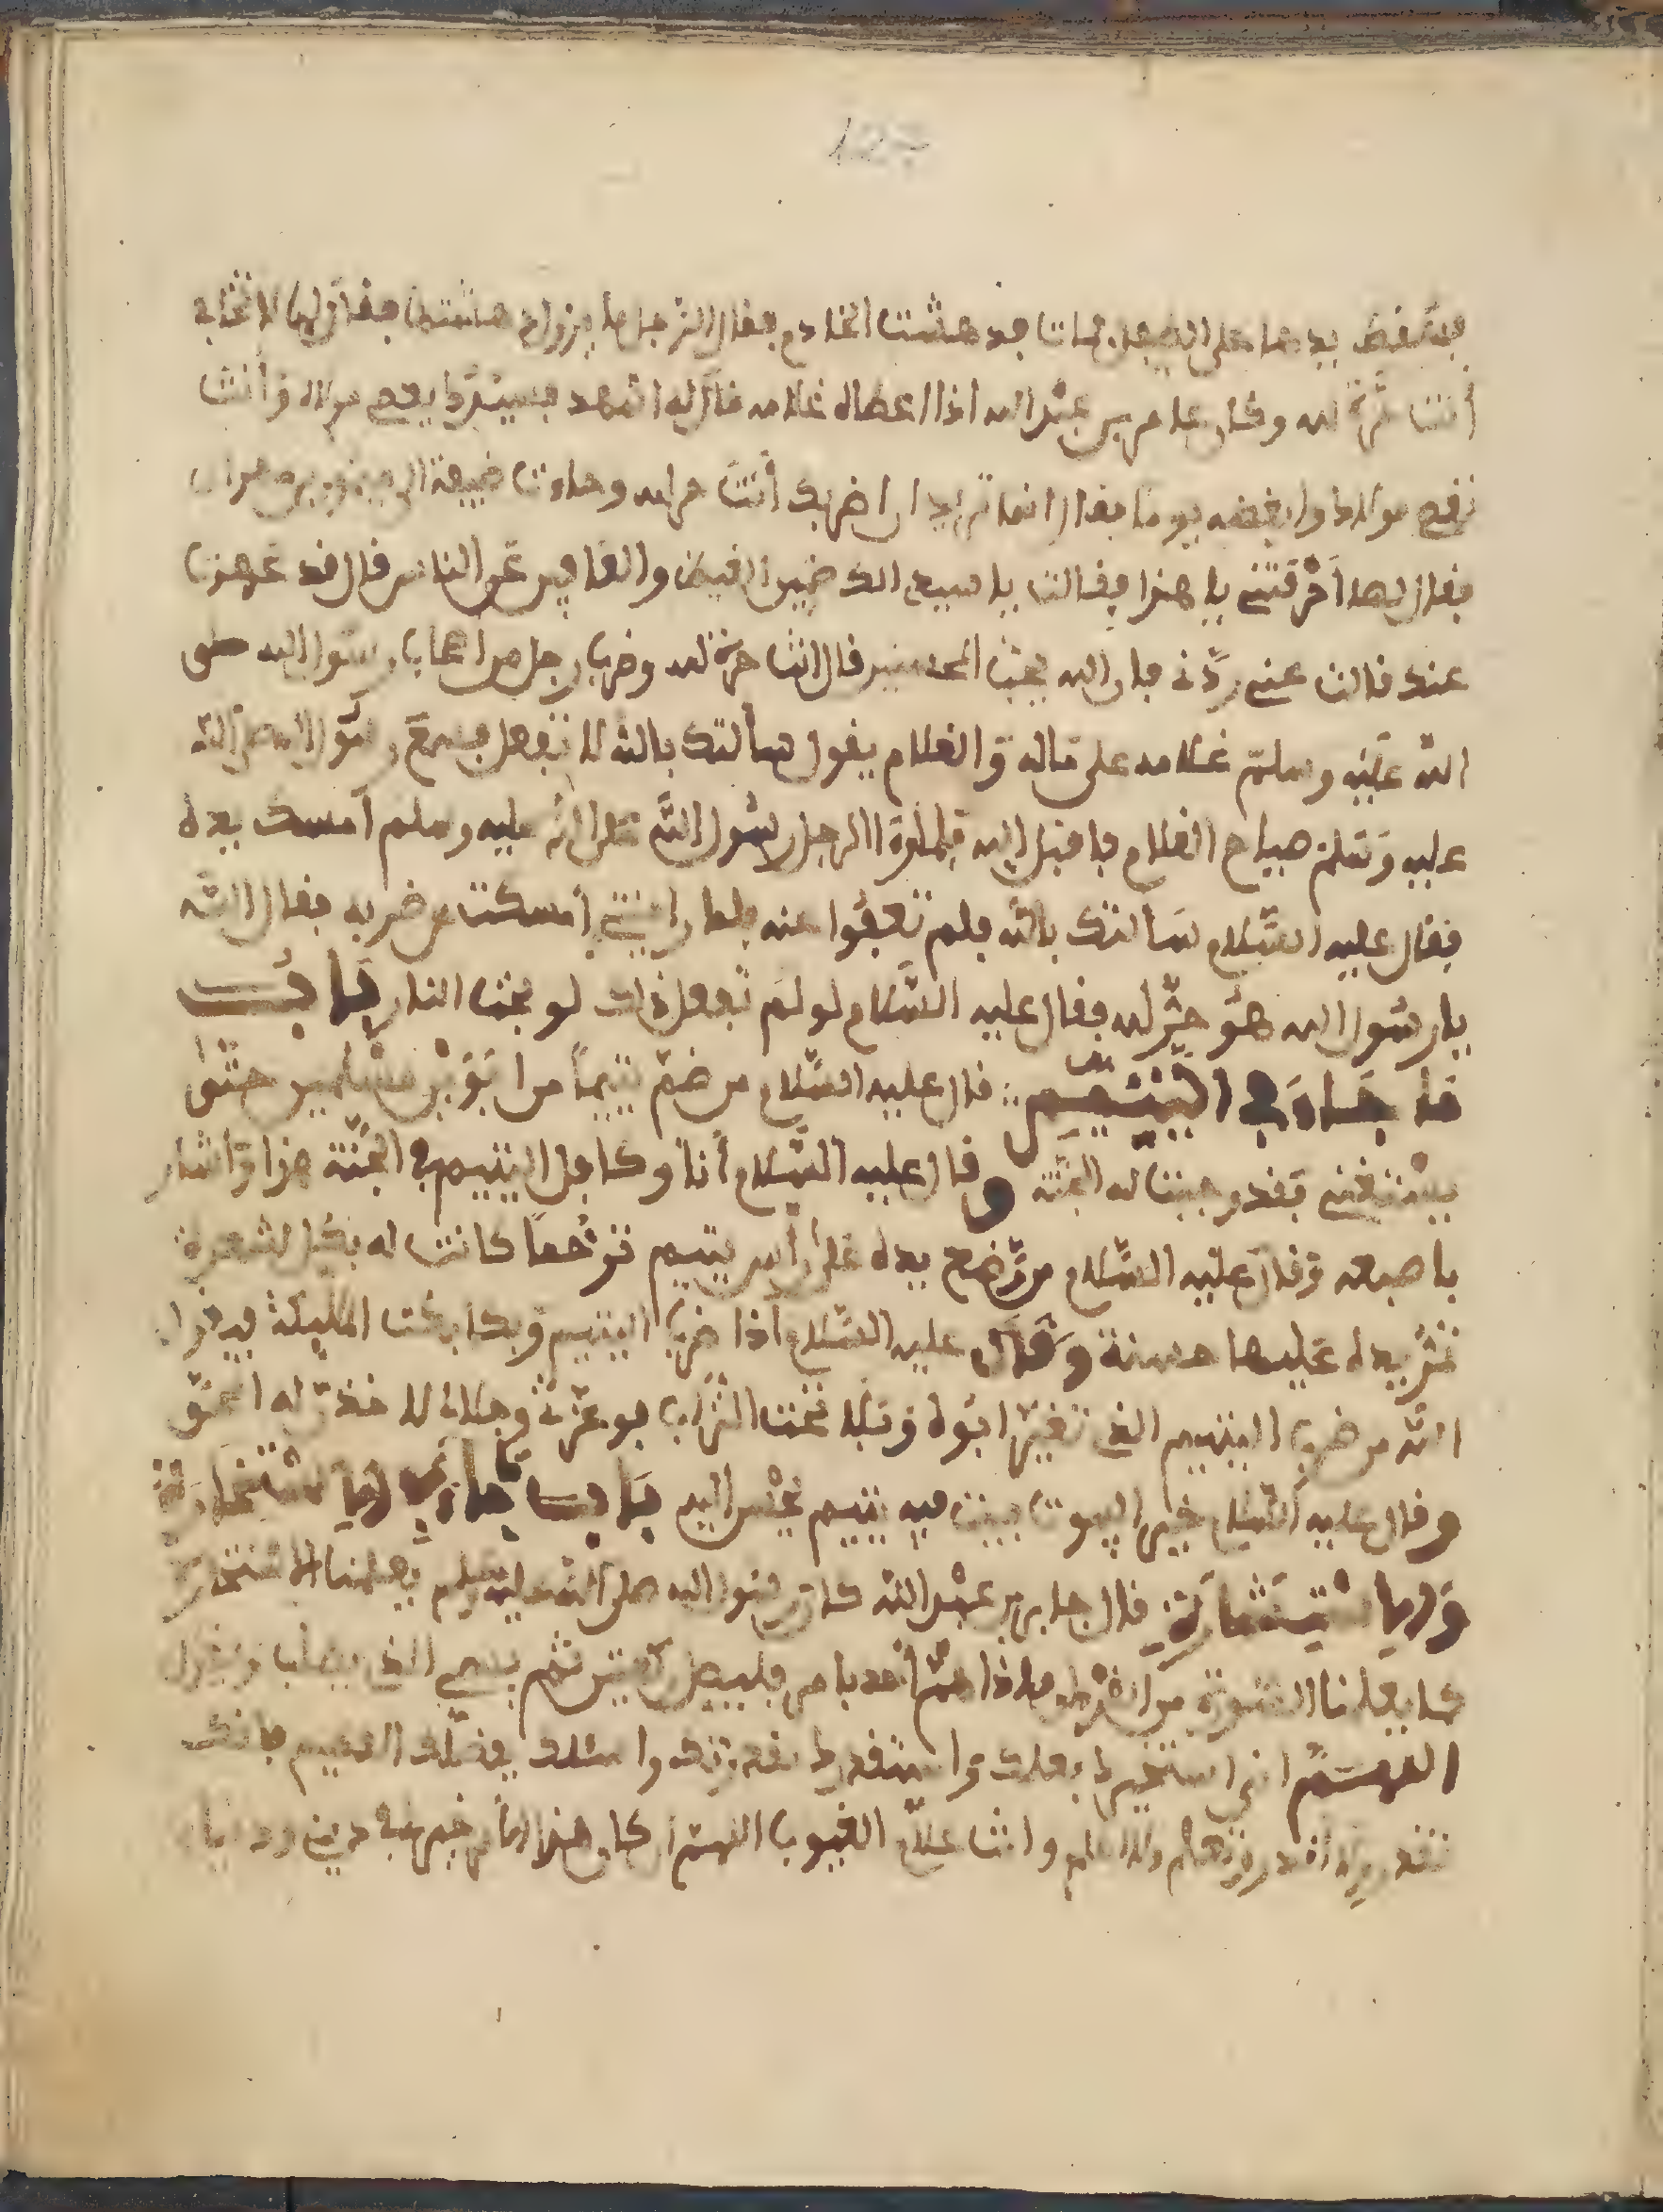 127
فسقط يدها على الطفل فمات فدهشت الخادم فقال الرجل ما يزول دهشتها فقال لها لا تخافي
أنت حرة لله وكان عامر بن عبد الله اذا اعطاه غلامه قال له اشهد سيدك يعصي مولاه وأنت
تعصي مولاك واغضبه يوما فقال انما تريد ان اضربك أنت حر لله وجاءت ضيفة الى ميمون بن مهران
فقال لها احرقتني يا هذا فقالت يا سيدي الكاظمين الغيظ والعافين عن الناس قال قد عفوت
عنك قالت عني زدني فان الله يحب المحسنين قال انت حرة لله وضرب رجل من اصحاب رسول الله صلى
الله عليه وسلم غلامه على ماله والغلام يقول سألتك بالله لا تفعل فسمع رسول الله صلى الله
عليه وسلم صياح الغلام فاقبل اليه فلما رءا الرجل رسول الله صلى الله عليه وسلم أمسك يده
فقال عليه السلام سألتك بالله فلم تعفوا عنه فلما رايتني أمسكت عن ضربه فقال الله
يا رسول الله هو حر لله فقال عليه السلام لو لم تفعل ذلك لو نحت النار باب
ما جاء في اليتيم قال عليه السلام من ضم يتيما من ابوين مسلمين حتى
يستغني فقد وجبت له الجنة وقال عليه السلام أنا وكافل اليتيم في الجنة هذا وأشار
باصبعه وقال عليه السلام من وضع يده على رأس يتيم ترحما كانت له بكل شعرة
تمر يده عليها حسنة وقال عليه السلام اذا ضرب اليتيم وبكا بكت الملئكة فيقول
الله من ضرب اليتيم الذي تغيب ابوه وبلا تحت التراب فوعزتي وجلالي لاخذن له الحق
وقال عليه السلام خير البيوت بيت فيه يتيم يحسن اليه باب ما جاء في الاستخارة
والاستشارة قال جابر بن عبد الله كان رسول الله صلى الله عليه وسلم يعلمنا الاستخارة
كما يعلمنا السورة من القرءان فاذا هم احد بامر فليصل ركعتين ثم يدعي الذي يطلب ويقول
اللهم اني استخيرك بعلمك واستقدرك بقدرتك واسئلك بفضلك العظيم فانك
تقدر ولا أقدر وتعلم ولا اعلم وانت علام الغيوب اللهم ان كان هذا الامر خير لي في ديني ودنياي